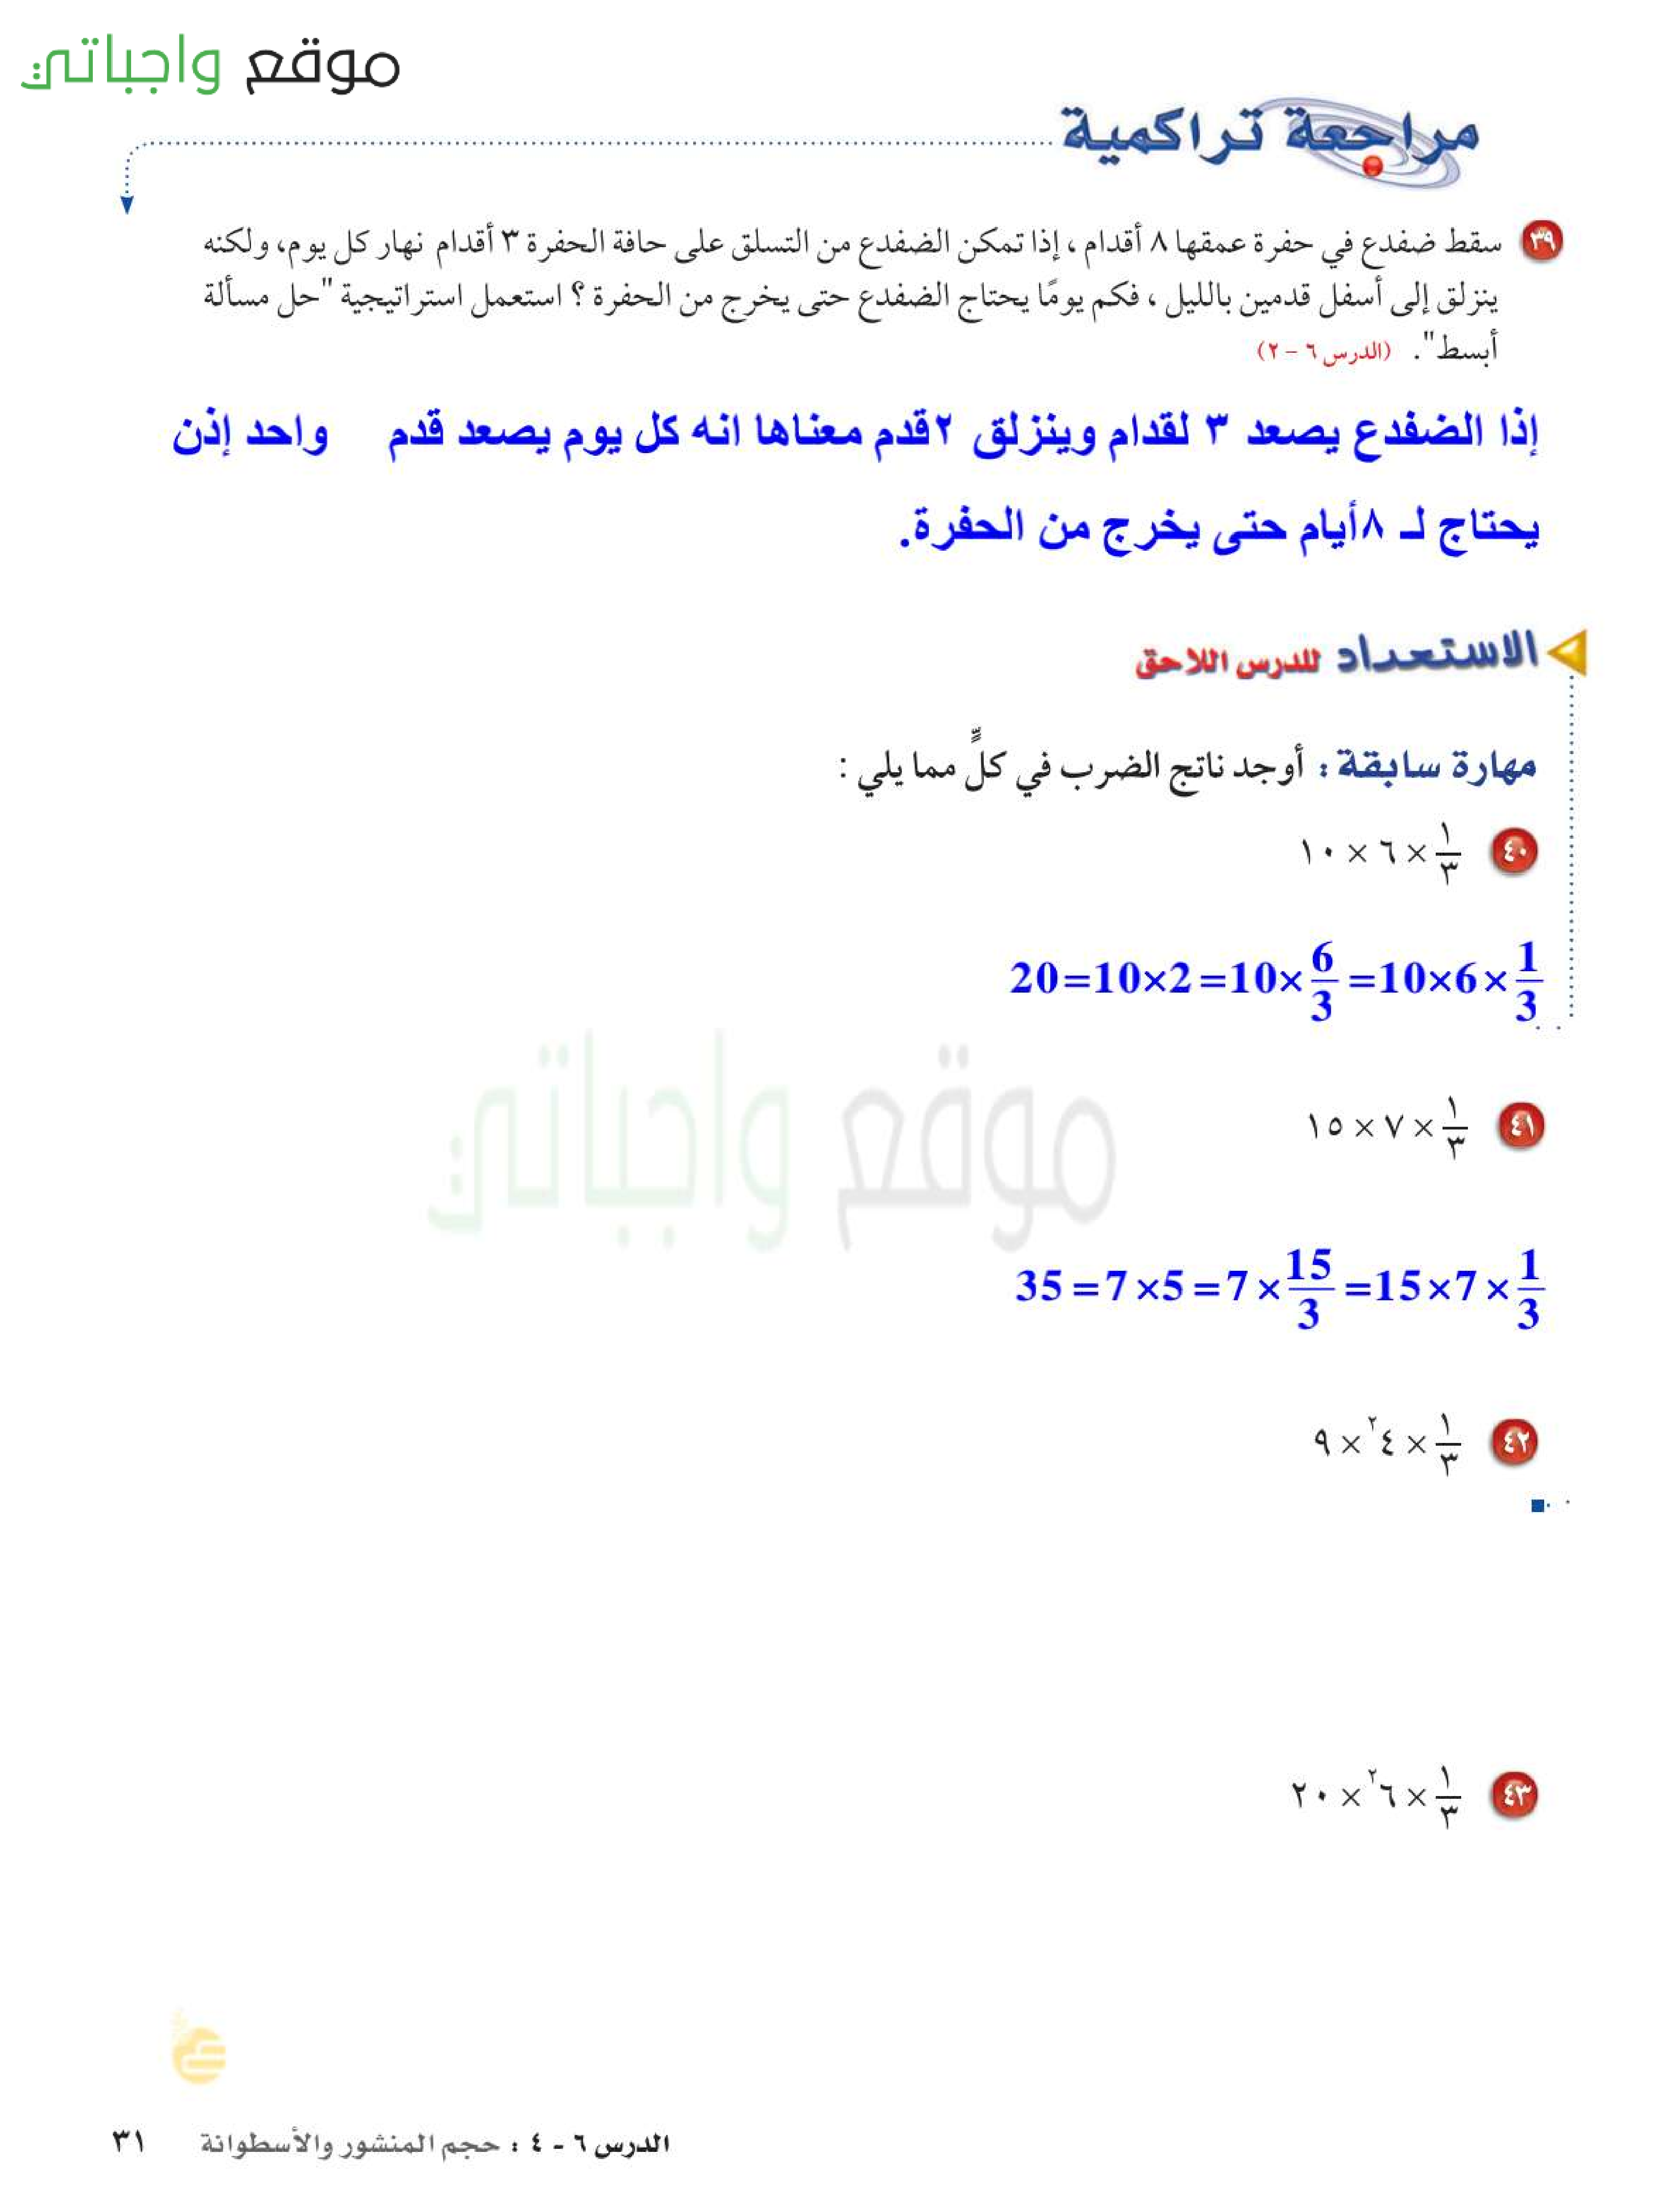 موقع واجباتي
مراجعة تراكمية
٣٩ سقط ضفدع في حفرة عمقها ٨ أقدام ، إذا تمكن الضفدع من التسلق على حافة الحفرة ٣ أقدام نهار كل يوم، ولكنه
ينزلق إلى أسفل قدمين بالليل ، فكم يومًا يحتاج الضفدع حتى يخرج من الحفرة ؟ استعمل استراتيجية "حل مسألة
أبسط". (الدرس ٦ – ٢)
إذا الضفدع يصعد ٣ لقدام وينزلق ٢قدم معناها انه كل يوم يصعد قدم واحد إذن
يحتاج لـ ٨أيام حتى يخرج من الحفرة.
الاستعداد للدرس اللاحق
مهارة سابقة : أوجد ناتج الضرب في كلٍّ مما يلي :
٤٠ ١/٣ × ٦ × ١٠
20=10×2=10×6/3=10×6×1/3
٤١ ١/٣ × ٧ × ١٥
موقع واجباتي
35=7×5=7×15/3=15×7×1/3
٤٢ ١/٣ × ٤² × ٩
٤٣ ١/٣ × ٦² × ٢٠
الدرس ٦ - ٤ : حجم المنشور والأسطوانة ٣١